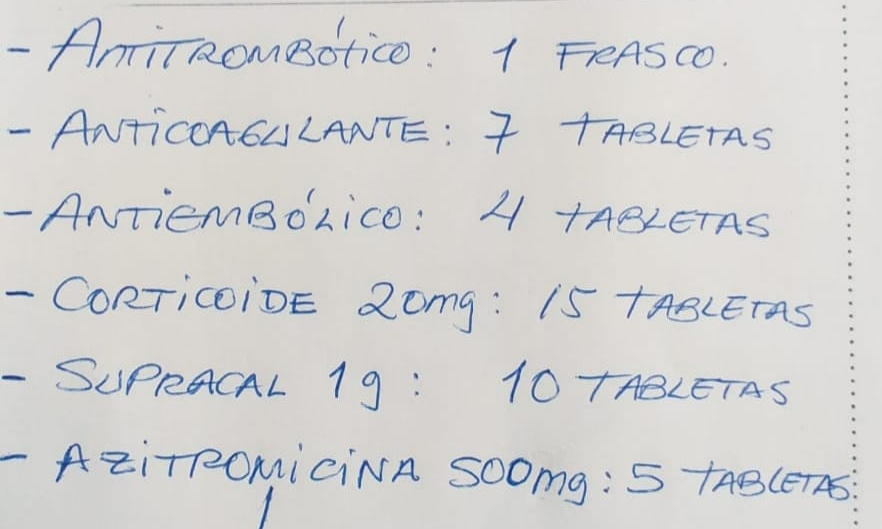 - ANTITROMBÓTICO: 1 FRASCO.
- ANTICOAGULANTE: 7 TABLETAS
- ANTIEMBÓLICO: 4 TABLETAS
- CORTICOIDE 20mg: 15 TABLETAS
- SUPRACAL 1g: 10 TABLETAS
- AZITROMICINA 500mg: 5 TABLETAS.